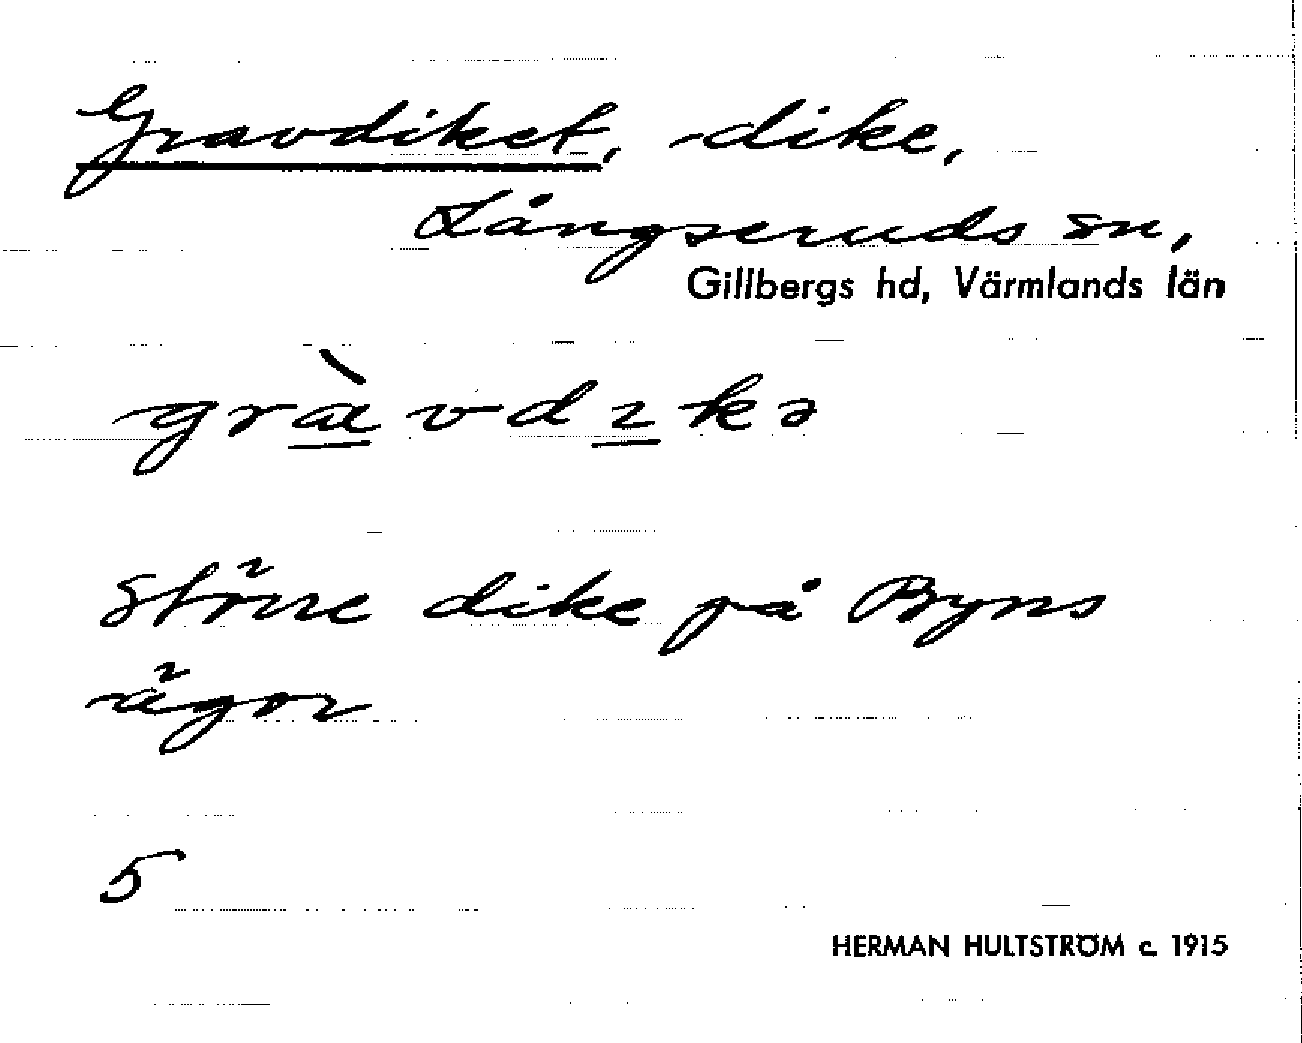 Gravdiket, dike,
Långseruds sn,
Gillbergs hd, Värmlands län
græ̀vdıkə
Större dike på Byns
ägor
5
HERMAN HULTSTRÖM c. 1915